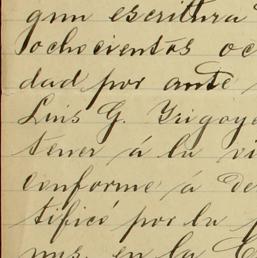 gun escritura
ochocientos oc
dad por ante
Luis G. Yrigoye
tener á la vi
conforme á de
tificó por la f
ms. en la C